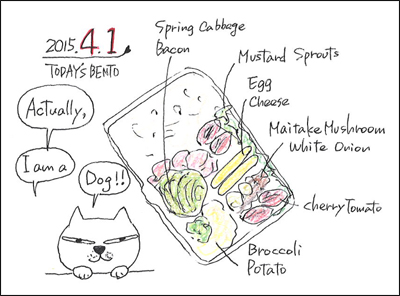 2015.4.1
TODAY'S BENTO
Actually,
I am a
Dog!!
Spring Cabbage
Bacon
Mustard Sprouts
Egg
Cheese
Maitake Mushroom
White Onion
Cherry Tomato
Broccoli
Potato